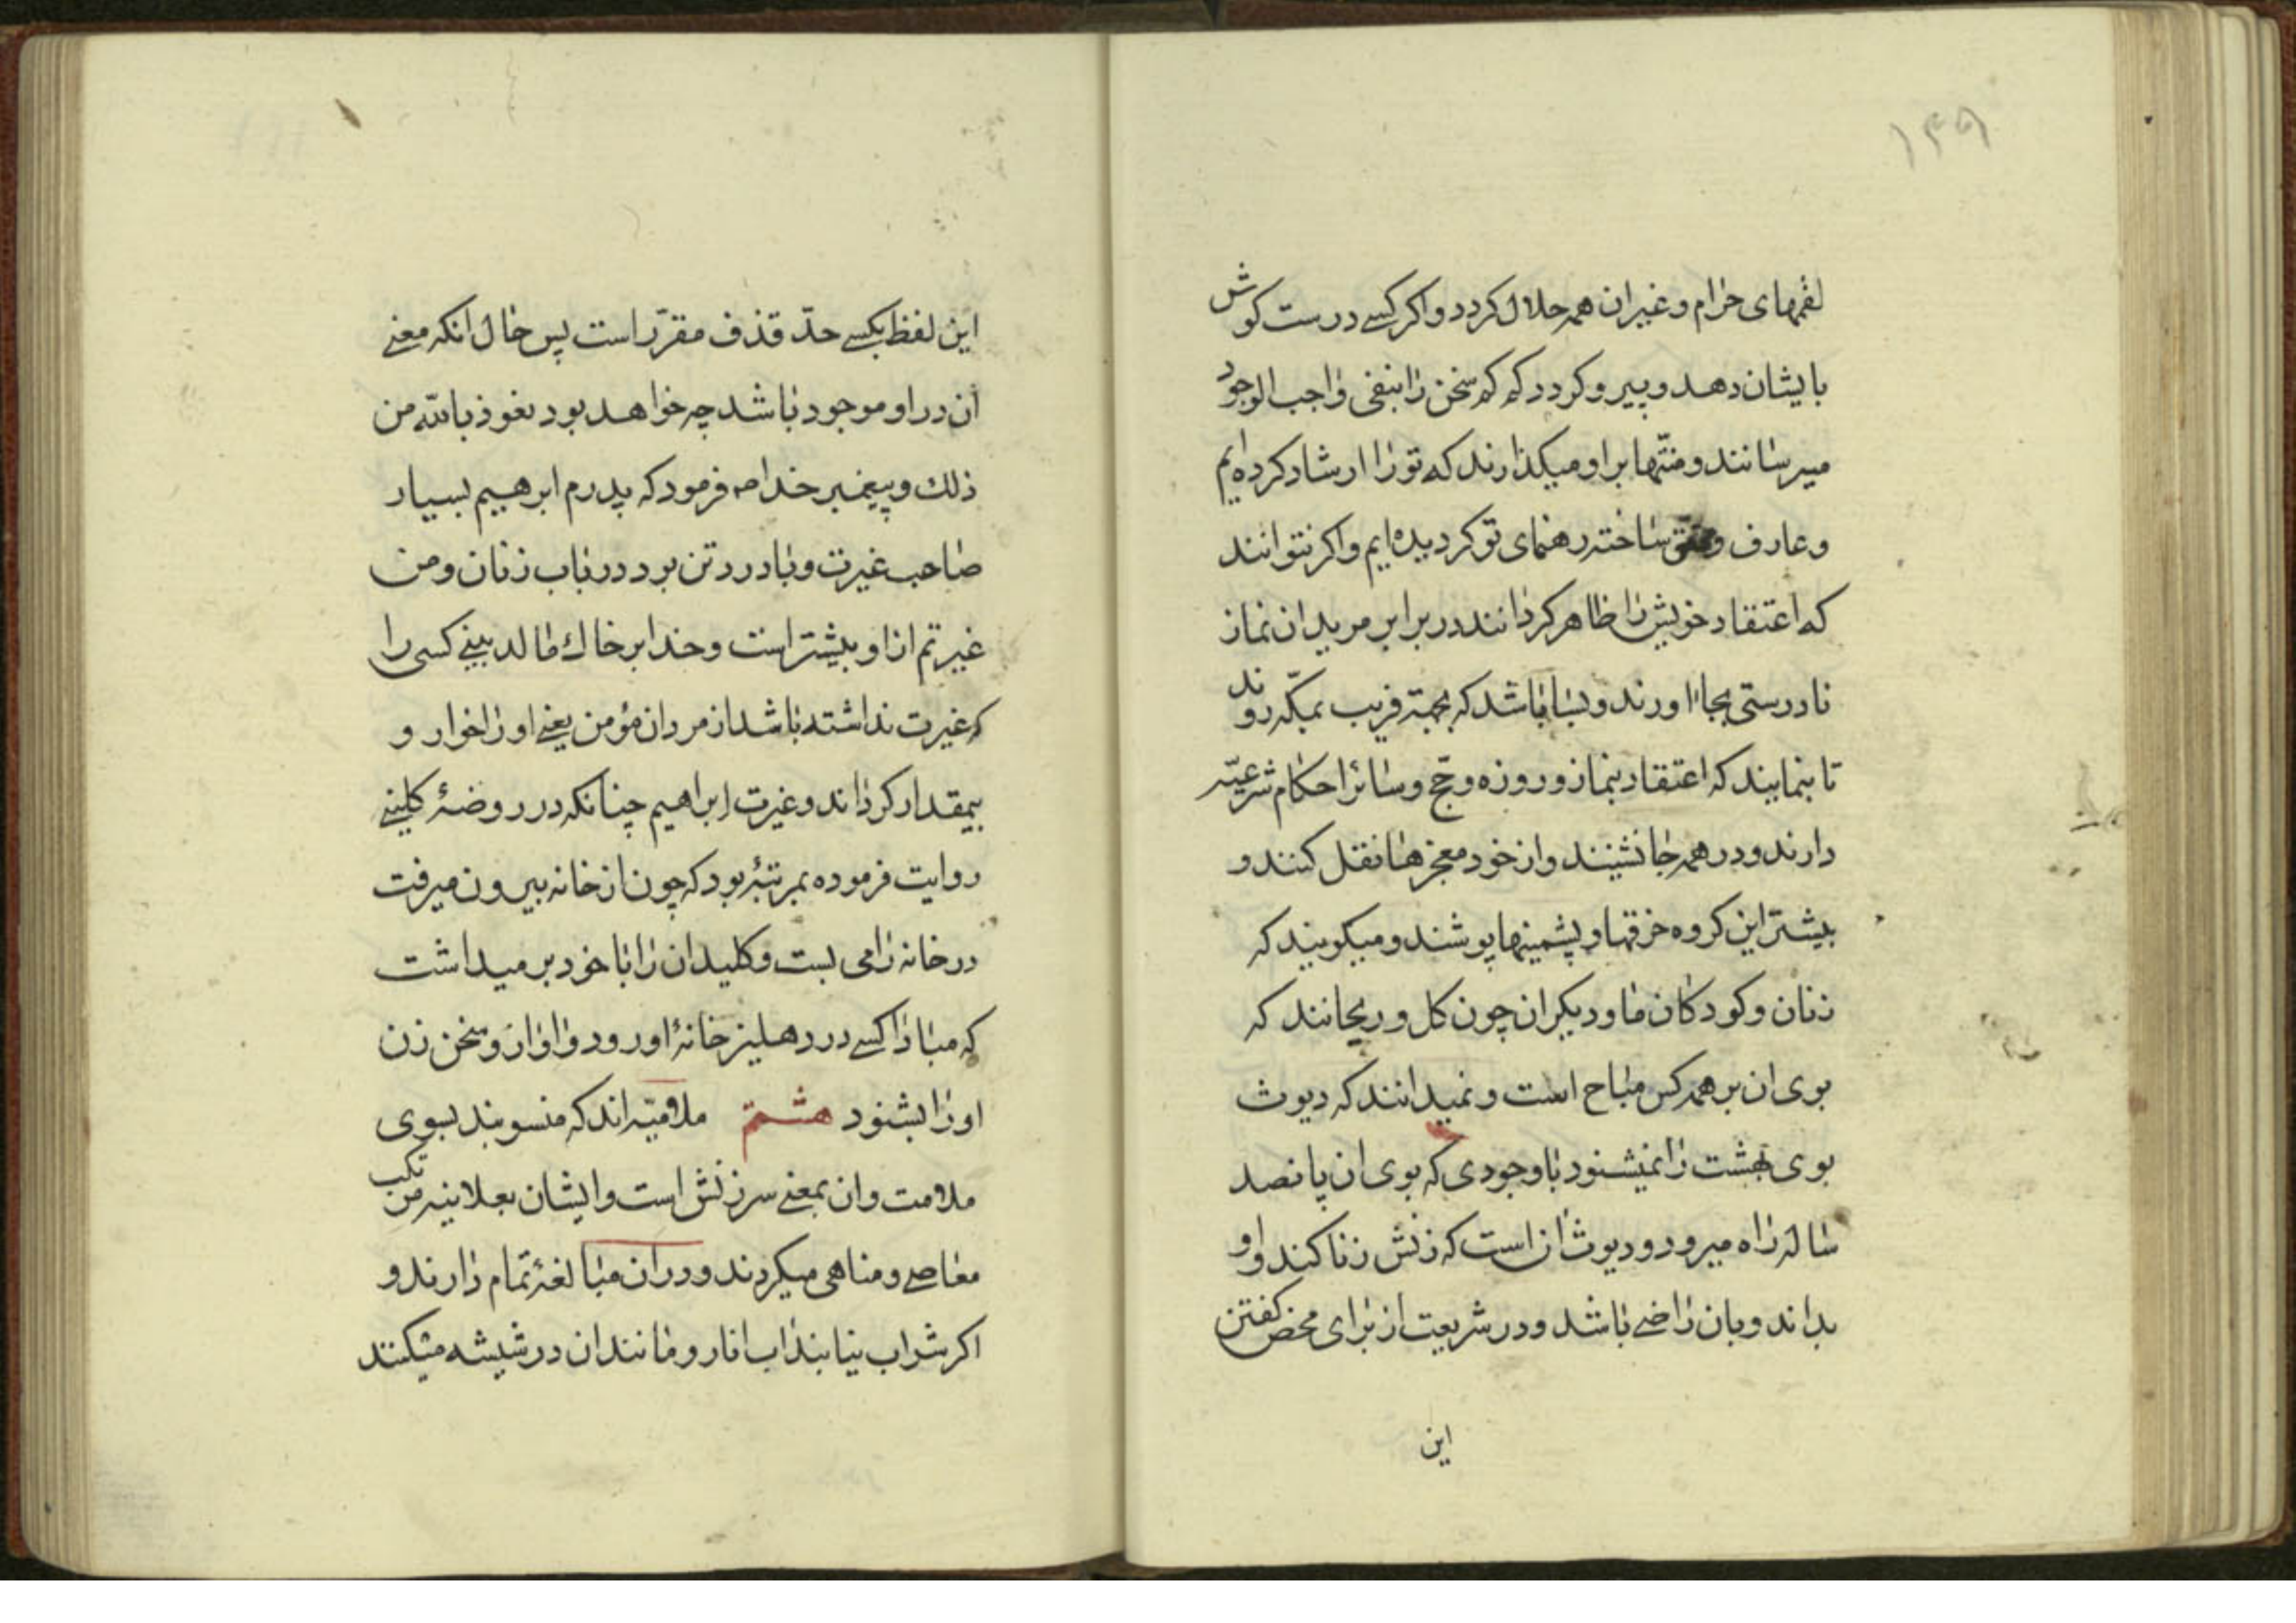 ۱۴۹
لقمهای حرام و غیر ان همه حلال کردد و اکر کسے درست کوش
بایشان دهد و پیرو کردد که که سخن را بنفی واجب الوجود
میرسانند و منّتها بر او میکذارند که تو را ارشاد کرده ایم
و عارف و محقق ساخته رهنمای تو کردیده ایم و اکر نتوانند
که اعتقاد خویش را ظاهر کردانند در برابر مریدان نماز
نادرستی بجا اورند و بسا باشد که بجهة فریب بمکّه روند
تا بنمایند که اعتقاد بنماز و روزه و حجّ و سائر احکام شرعیّه
دارند و در همه جا نشینند و از خود معجزها نقل کنند و
بیشتر این کروه خرقها و پشمینها پوشند و میکویند که
زنان و کودکان ما و دیکران چون کل و ریحانند که
بوی ان بر همه کس مباح است و نمیدانند که دیوث
بوی بهشت را نمیشنود با وجودی که بوی ان پانصد
ساله راه میرود و دیوث ان است که زنش زنا کند و او
بداند و بان راضے باشد و در شریعت از برای محض کفتن
این
این لفظ بکسے حدّ قذف مقرّر است پس حال انکه معنے
ان در او موجود باشد چه خواهد بود نعوذ بالله من
ذلك و پیغمبر خدا صه فرمود که پدرم ابرهیم بسیار
صاحب غیرت و بادرد تن بود در باب زنان و من
غیرتم از او بیشتر است و خدا بر خاك مالد بینے کسی را
که غیرت نداشته باشد از مردان مؤمن یعنے او را خوار و
بیمقدار کرداند و غیرت ابراهیم چنانکه در روضۀ کلینے
روایت فرموده بمرتبۀ بود که چون از خانه بیرون میرفت
در خانه را می بست و کلید ان را با خود بر میداشت
که مبادا کسے در دهلیز خانۀ او رود و اواز و سخن زن
او را بشنود هشتم ملامتیّه اند که منسوبند بسوی
ملامت و ان بمعنے سرزنش است و ایشان بعلانیه مرتکب
معاصے و مناهی میکردند و در ان مبالغۀ تمام دارند و
اکر شراب نیابند اب انار و مانند ان در شیشه میکنند